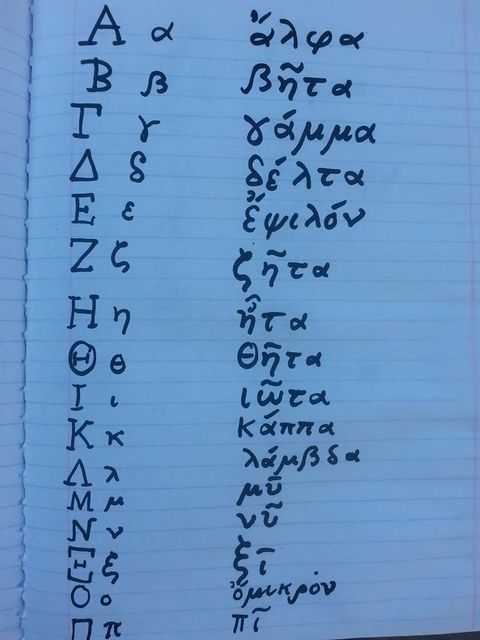 Α α ἄλφα
Β β βῆτα
Γ γ γάμμα
Δ δ δέλτα
Ε ε ἔψιλόν
Ζ ζ ζῆτα
Η η ἦτα
Θ θ θῆτα
Ι ι ιῶτα
Κ κ κάππα
Λ λ λάμβδα
Μ μ μῦ
Ν ν νῦ
Ξ ξ ξῖ
Ο ο ὄμικρόν
Π π πῖ